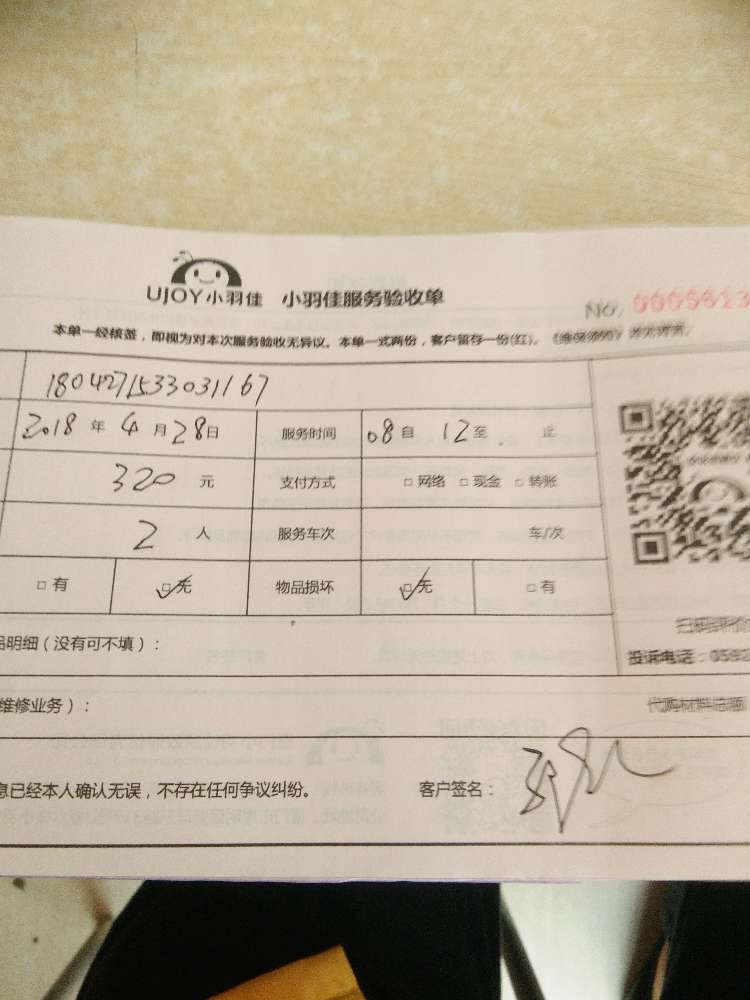 UJOY小羽佳 小羽佳服务验收单
No. 0005623
本单一经核签，即视为对本次服务验收无异议。本单一式两份，客户留存一份(红)。《维保须知》
1804271533031167
2018年4月28日 服务时间 08自12至 止
320元 支付方式 □网络 □现金 □转账
2人 服务车次 车/次
□有 □无 物品损坏 □无 □有
扫码评价
品明细（没有可不填）：
投诉电话：0592
维修业务）：
代购材料总额
息已经本人确认无误，不存在任何争议纠纷。 客户签名：